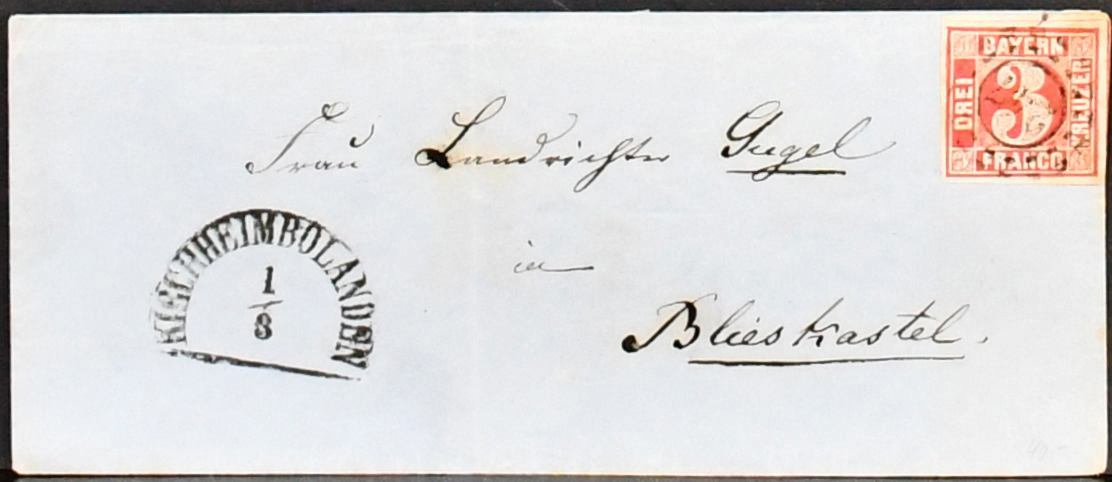 BAYERN
DREI 3 KREUZER
FRANCO
Frau Landrichter Gugel
in
Blieskastel.
KIRCHHEIMBOLANDEN
1
8
40.-